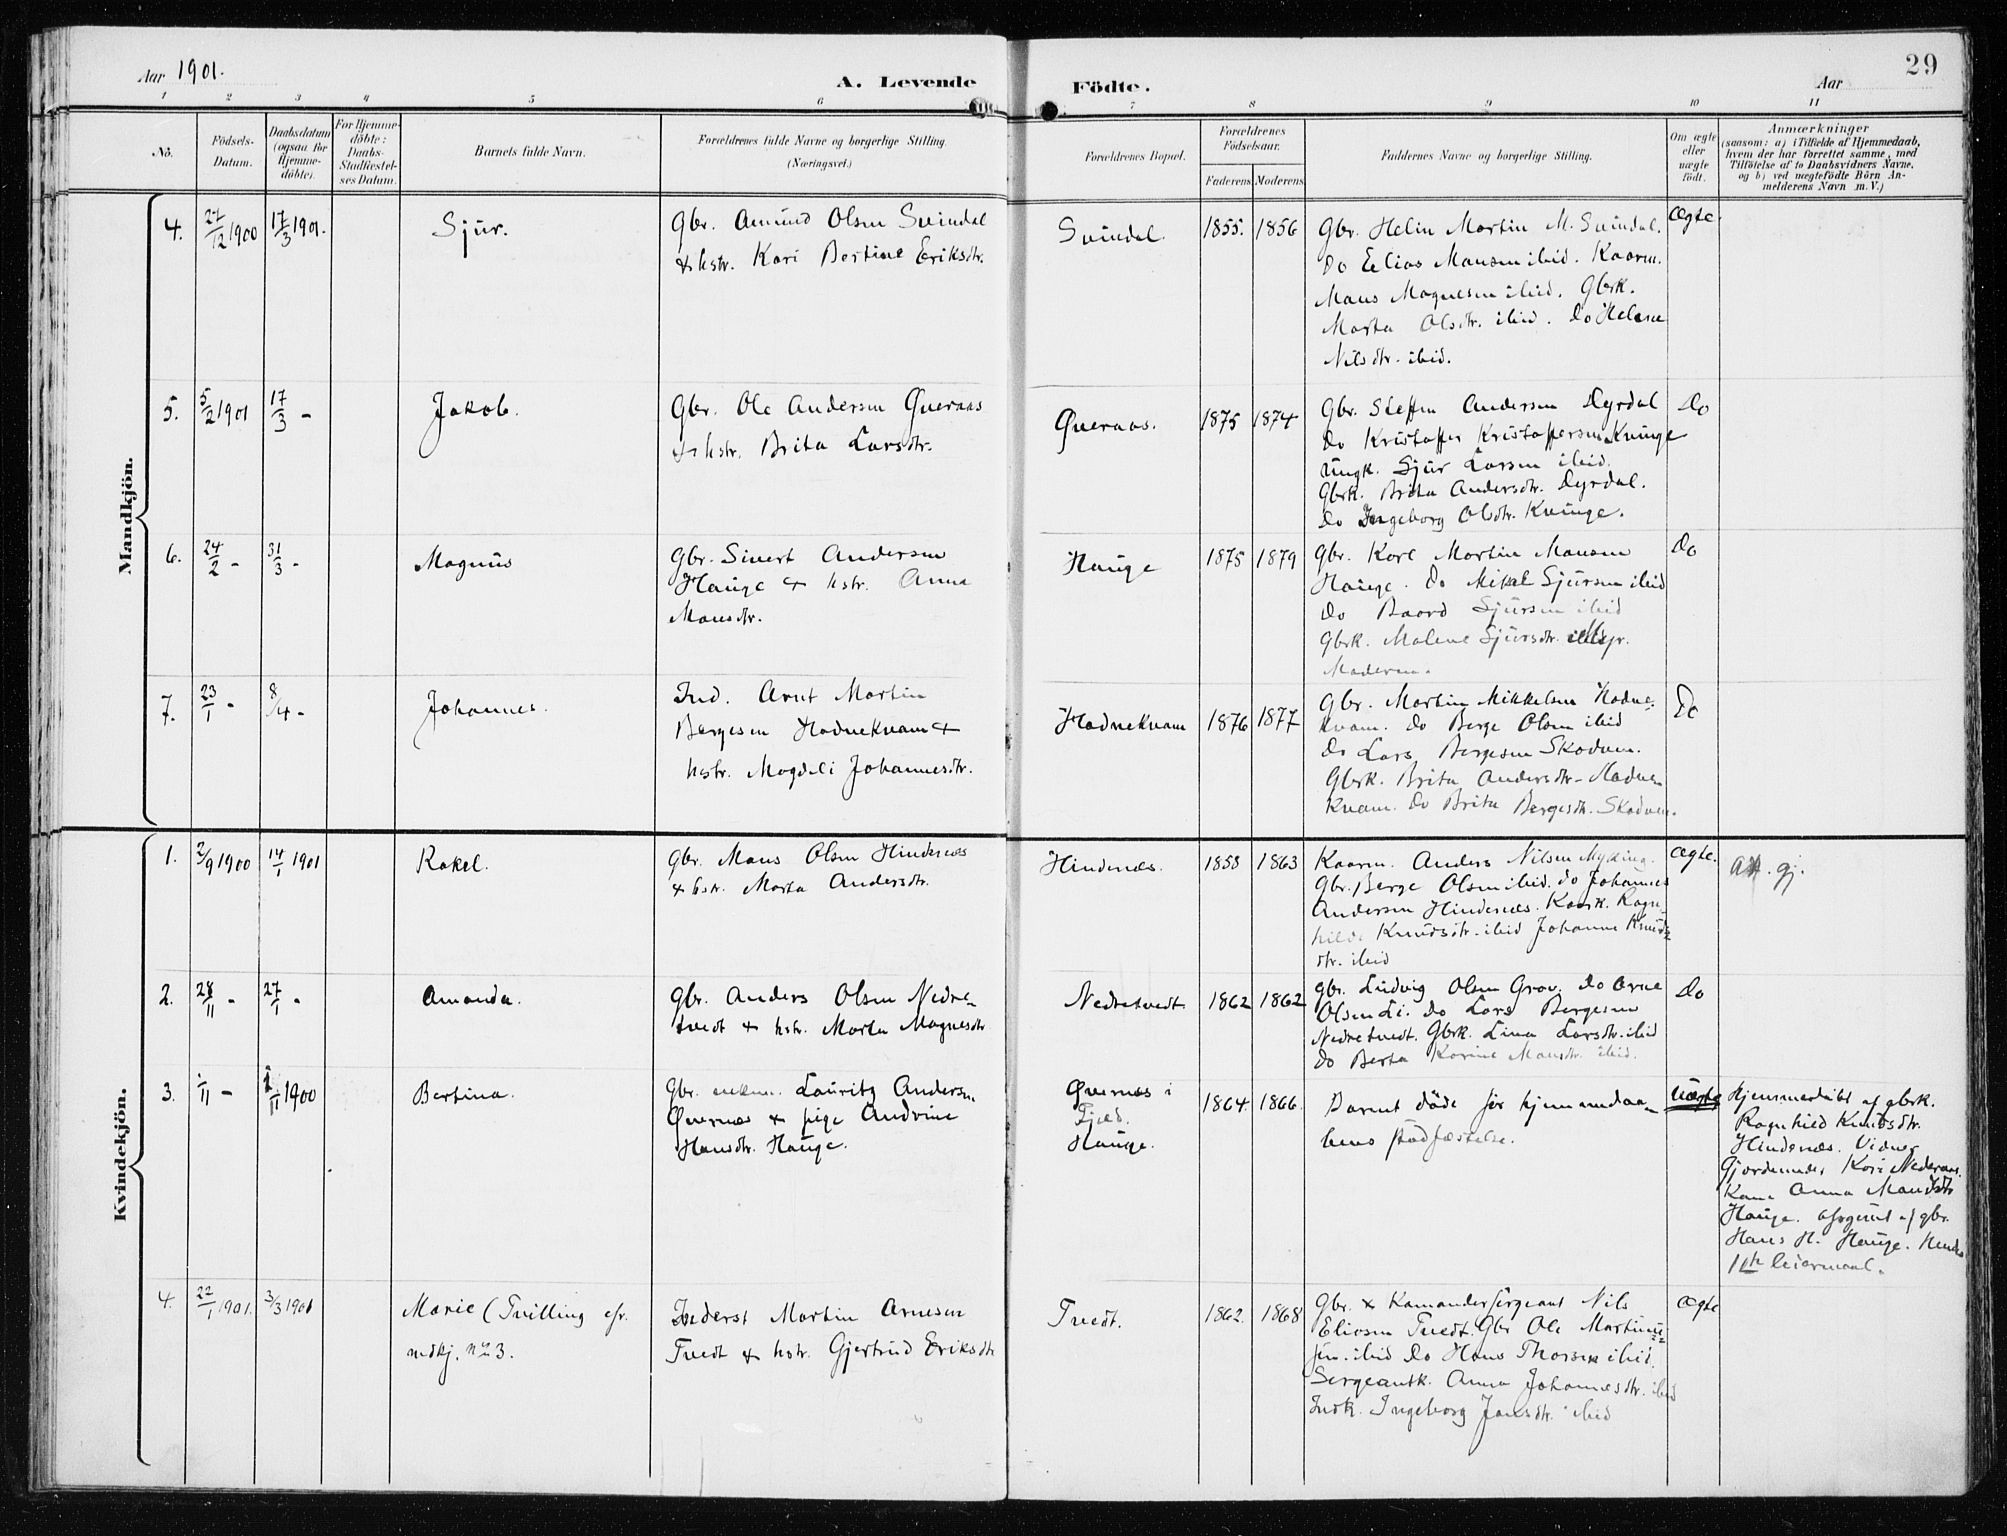 Aar 1901.
A. Levende Födte.
Aar
29
1 2 3 4 5 6 7 8 9 10 11
No.
Födsels-Datum.
Daabsdatum (ogsaa for Hjemme-döbte).
For Hjemme-döbte: Daabs-Stadfæstel-ses Datum.
Barnets fulde Navn.
Forældrenes fulde Navne og borgerlige Stilling.
(Næringsvei.)
Forældrenes Bopæl.
Forældrenes Födselsaar.
Faderens Moderens
Faddernes Navne og borgerlige Stilling.
Om ægte eller uægte födt.
Anmærkninger
(saasom: a) i Tilfælde af Hjemmedaab,
hvem der har forrettet samme, med
Tilföielse af to Daabsvidners Navne,
og b) ved uægtefödte Börn An-
melderens Navn m. V.)
Mandkjön.
4. 27/12 1900 17/3 1901. Sjur.
Gbr. Amund Olsen Svindal
& hstr. Kari Bertine Eriksdtr.
Svindal. 1855. 1856
Gbr. Helin Martin M. Svindal.
Do Elias Mansen ibid. Kaarm.
Mans Magnesen ibid. Gbrk.
Marta Olsdtr. ibid. Do Helene
Nilsdtr. ibid.
Ægte
5. 5/2 1901 17/3 - Jakob.
Gbr. Ole Andersen Qveraas
& hstr. Brita Larsdtr.
Qveraas. 1875 1874
Gbr. Steffen Andersen Dyrdal
Do Kristoffer Kristoffersen Kvinge
Ungk. Sjur Larsen ibid.
Gbrk. Brita Andersdtr. Dyrdal.
Do Ingeborg Olsdtr. Kvinge.
Do
6. 24/2 - 31/3 - Magnus
Gbr. Sivert Andersen
Hauge & hstr. Anna
Mansdtr.
Hauge 1875 1879
Gbr. Karl Martin Mansen
Hauge. Do Mikal Sjursen ibid
Do Baard Sjursen ibid
Gbrk. Malene Sjursdtr. ibid
Moderen.
Do
7. 23/1 - 8/4 - Johannes.
Ind. Arnt Martin
Bergesen Hodnekvam &
hstr. Magdeli Johannesdtr.
Hodnekvam 1876 1877
Gbr. Martin Mikkelsen Hodne-
kvam. Do Berge Olsen ibid
Do Lars Bergesen Skodven.
Gbrk. Brita Andersdtr. Hodne-
kvam. Do Brita Bergesdtr. Skodven.
Do
Kvindekjön.
1. 2/9 1900 14/1 1901 Rakel.
Gbr. Mans Olsen Hindenæs
& hstr. Marta Andersdtr.
Hindenæs. 1858 1863
Kaarm. Anders Nilsen Myking.
Gbr. Berge Olsen ibid. Do Johannes
Andersen Hindenæs. Kaark. Ragn-
hild Knudsdtr. ibid Johanna Knuds-
dtr. ibid
Ægte.
2. 28/11 - 27/1 - Amanda.
Gbr. Anders Olsen Nedre-
tvedt & hstr. Marta Magnesdtr
Nedretvedt 1862 1862
Gbr. Ludvig Olsen Grov. Do Arne
Olsen Li. Do Lars Bergesen
Nedretvedt. Gbrk. Lina Larsdtr. ibid
Do Berta Karine Mansdtr. ibid.
Do
3. 1/11 - 2/11 1900 Bertina.
Gbr. enkem. Lauritz Andersen
Qvernæs & pige Andrine
Hansdtr. Hauge.
Qvernæs i
Fjeld.
Hauge.
1864. 1866.
Barnet döde för hjemmedaa-
bens stadfæstelse.
Uægte
Hjemmedöbt af gbrk.
Ragnhild Knudsdtr.
Hindenæs. Vidner
Gjordemoder Kari Nederaas.
Kone Anna Mansdtr
Hauge. Opgivet af gbr.
Hans H. Hauge. Hendes
1ste leiermaal.
4. 22/1 1901. 3/3 1901 Marie (Tvilling cfr.
mdkj. No 3.
Inderst Martin Arnesen
Tvedt & hstr. Gjertrud Eriksdtr
Tvedt. 1862. 1868
Gbr. & Kamandersergeant Nils
Eliasen Tvedt. Gbr Ole Martinus-
sen ibid Do Hans Thorsen ibid.
Sergeantk. Anna Johannesdtr. ibid
Indk. Ingeborg Jansdtr. ibid
Ægte